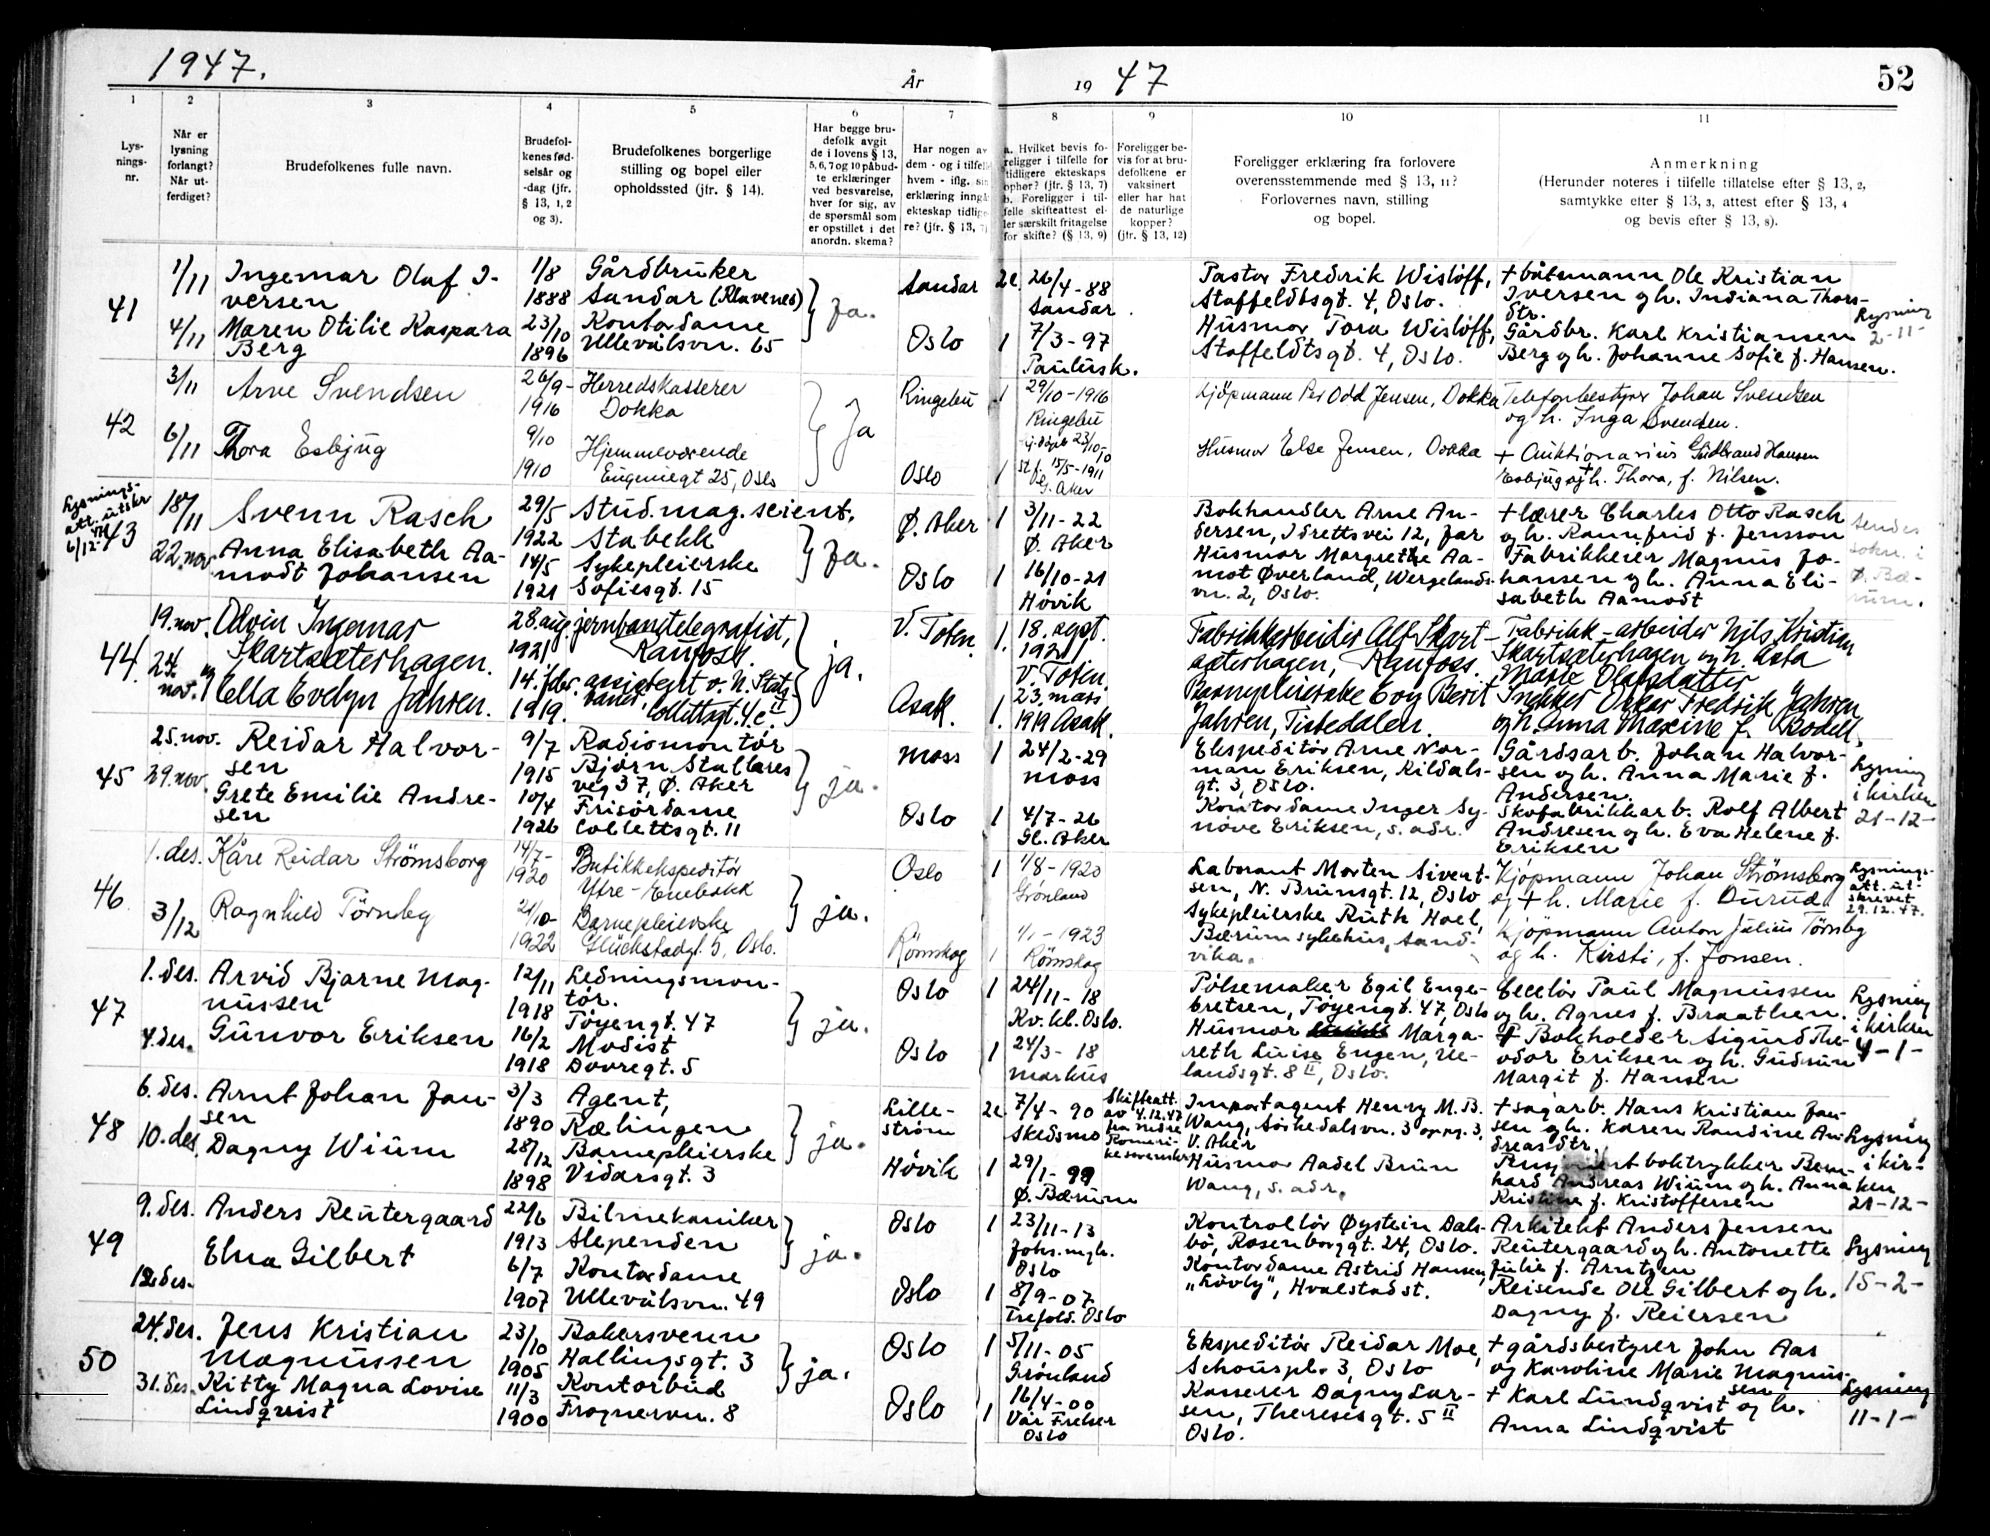 1947. År 19 47 52
1 2 3 4 5 6 7 8 9 10 11
Lys-
nings-
nr.
Når er
lysning
forlangt?
Når ut-
ferdiget?
Brudefolkenes fulle navn.
Brudefol-
kenes fød-
selsår og
-dag (jfr.
§ 13, 1, 2
og 3).
Brudefolkenes borgerlige
stilling og bopel eller
opholdssted (jfr. § 14).
Har begge bru-
defolk avgit
de i lovens § 13,
5, 6, 7 og 10 påbud-
te erklæringer
ved besvarelse,
hver for sig, av
de spørsmål som
er opstillet i det
anordn. skema?
Har nogen av
dem - og i tilfelle
hvem - iflg. sin
erklæring inngå
ekteskap tidlige-
re? (jfr. § 13, 7)
a. Hvilket bevis fo-
religger i tilfelle for
tidligere ekteskaps
ophør? (jfr. § 13, 7)
b. Foreligger i til-
felle skifteattest el-
ler særskilt fritagelse
for skifte? (§ 13, 9)
Foreligger be-
vis for at bru-
defolkene er
vaksinert
eller har hat
de naturlige
kopper?
(jfr. § 13, 12)
Foreligger erklæring fra forlovere
overensstemmende med § 13, 11?
Forlovernes navn, stilling
og bopel.
Anmerkning
(Herunder noteres i tilfelle tillatelse efter § 13, 2,
samtykke efter § 13, 3, attest efter § 13, 4
og bevis efter § 13, 8).
41
1/11
4/11
Ingemar Olaf I-
versen
Maren Otilie Kaspara
Berg
1/8
1888
23/10
1896
Gårdbruker
Sandar (Klavenes)
Kontordame
Ullevålsvn. 65
Ja.
Sandar
Oslo
2e
1
26/4-88
Sandar
7/3-97
Paulusk.
Pastor Fredrik Wisløff,
Staffeldtsgt. 4, Oslo.
Husmor Tora Wisløff,
Staffeldtsgt. 4, Oslo.
+ båtsmann Ole Kristian
Iversen og h. Indiana Thors-
dtr.
Gårdbr. Karl Kristiansen
Berg og h. Johanne Sofie f. Hansen.
Lysning
2-11-
42
3/11
6/11
Arne Svendsen
Thora Esbjug
26/9-
1916
9/10
1910
Herredskasserer
Dokka
Hjemmeværende
Eugeniegt 25, Oslo
Ja
Ringebu
Oslo
1
1
29/10-1916
Ringebu
23/10-10
15/5-1911
G. Aker
Kjøpmann Per Odd Jensen, Dokka
Husmor Else Jensen, Dokka
Telefonbestyrer Johan Svendsen
og h. Inga Svendsen.
+ Auktionarius Gudbrand Hansen
Esbjug og h. Thora, f. Nilsen.
Lysnings-
att. utskr
6/12-
43
18/11
22. nov
Svenn Rasch
Anna Elisabeth Aa-
modt Johansen
29/5
1922
14/5
1921
Stud. mag. scient.
Stabekk
Sykepleierske
Sofiesgt. 15
Ja.
Ø. Aker
Oslo
1
1
3/11-22
Ø. Aker
16/10-21
Høvik
Bokhandler Arne An-
dersen, Idrettsvei 12, Jar
Husmor Margrethe Aa-
mot Øverland, Wergelands-
vn. 2, Oslo.
+ lærer Charles Otto Rasch
og h. Rannfrid f. Jensson
Fabrikkeier Magnus Jo-
hansen og h. Anna Eli-
sabeth Aamodt
Sendes
sokn. i
Ø. Bæ-
rum.
44.
19. nov.
24. nov.
Odvin Ingemar
Skartsæterhagen.
og
Ella Evelyn Jahren.
28. aug
1921
14. febr.
1919.
jernbanetelegrafist,
Raufoss.
assistent v. N. Stats-
baner, Collettsgt. 4 c. II
ja.
V. Toten.
Asak.
1.
1.
18. sept.
1921
V. Toten.
23. mars
1919 Asak.
Fabrikkarbeider Alf Skart-
sæterhagen, Raufoss.
Barnepleierske Eva Berit
Jahren, Tistedalen.
Fabrikk-arbeider Nils Kristian
Skartsæterhagen og h. Asta
Marie Olafsdatter
Snekker Oskar Fredrik Jahren
og h. Anna Maxine f. Bodell.
45
25. nov.
29. nov.
Reidar Halvor-
sen
Grete Emilie Andre-
sen
9/7
1915
10/4
1926
Radiomontør
Bjørn Stallares
veg 37, Ø. Aker
Frisørdame
Collettsgt. 11
ja.
Moss
Oslo
1
1
24/2-29
Moss
4/7-26
Gl. Aker
Ekspeditør Arne Nor-
man Eriksen, Kildals-
gt. 3, Oslo.
Kontordame Inger Sy-
nøve Eriksen, s. adr.
Gårdsarb. Johan Halvor-
sen og h. Anna Marie f.
Andersen.
Skofabrikkarb. Rolf Albert
Andresen og h. Eva Helene f.
Eriksen
Lysning
i kirken
21-12-
46
1. des.
3/12
Kåre Reidar Strømsborg
Ragnhild Törnby
14/7-
1920
21/10-
1922
Butikkekspeditør
Ytre-Enebakk
Barnepleierske
Glückstadgt. 5, Oslo.
ja.
Oslo
Rømskog
1
1
1/8-1920
Grønland
1/1-1923
Rømskog
Laborant Morten Sivert-
sen, N. Brunsgt. 12, Oslo
Sykepleierske Ruth Hoel,
Bærum sykehus, Sand-
vika.
Kjøpmann Johan Strømsborg
og + h. Marie f. Durud.
Kjøpmann Anton Julius Törnby
og h. Kirsti, f. Jonsen.
Lysnings-
att. ut-
skrevet
29.12.47.
47
1. des.
4. des.
Arvid Bjarne Mag-
nussen
Gunvor Eriksen
12/11
1918
16/2
1918
Ledningsmon-
tør.
Tøyengt. 47
Modist
Dovregt. 5
ja.
Oslo
Oslo
1
1
24/11-18
Kv. kl. Oslo.
24/3-18
Markus
Pølsemaker Egil Enge-
bretsen, Tøyengt. 47, Oslo
Husmor Marga-
reth Luise Engen, Ue-
landsgt. 8 II, Oslo.
Paul Magnussen
og h. Agnes f. Braathen.
+ Bokholder Sigurd The-
odor Eriksen og h. Gudrun
Margit f. Hansen
Lysning
i kirken
4-1-
48
6. des.
10. des.
Arnt Johan Jan-
sen
Dagny Wium
3/3
1890
28/12
1898
Agent,
Rælingen
Barnepleierske
Vidarsgt. 3
ja.
Lille-
strøm
Høvik
2e
1
7/4-90
Skedsmo
29/1-99
Ø. Bærum
Skifteatt.
av 4.12.47
fra Nedre
Romeri-
ke sorenskr
Importagent Henry M. B.
Wang, Sørkedalsvn. 3 oppg. 3,
V. Aker
Husmor Aadel Brun
Wang, s. adr.
+ sagarb. Hans Kristian Jan-
sen og h. Karen Randine An-
dreasdtr.
boktrykker Bern-
hard Andreas Wium og h. Anna
Kristine f. Kristoffersen
Lysning
i kir-
ken
21-12-
49
9. des.
12. des.
Anders Reutergaard
Elna Gilbert
22/6
1913
6/7
1907
Bilmekaniker
Slependen
Kontordame
Ullevålsvn. 49
ja.
Oslo
Oslo
1
1
23/11-13
Johs. mgh.
Oslo
8/9-07
Trefold. Oslo
Kontrollør Øystein Dals-
bö, Rosenborggt. 24, Oslo.
Kontordame Astrid Hansen,
"Løvly", Hvalstad st.
Arkitekt Anders Jensen
Reutergaard og h. Antonette
Julie f. Arntzen
Reisende Ole Gilbert og h.
Dagny f. Reiersen
Lysning
15-2-
50
24. des.
31. des.
Jens Kristian
Magnussen
Kitty Magna Lovise
Lindqvist
23/10
1905
11/3
1900
Bakersvenn
Hallingsgt. 3
Kontorbud
Frognervn. 8
ja.
Oslo
Oslo
1
1
5/11-05
Grønland
16/4-00
Vår Frelser
Oslo
Ekspeditør Reidar Moe,
Schouspl. 3, Oslo
Kasserer Dagny Lar-
sen, Theresesgt. 5 II
Oslo.
+ gårdsbestyrer John Aas
og Karoline Marie Magnus-
sen
+ Karl Lundqvist og h.
Anna Lindqvist
Lysning
11-1-